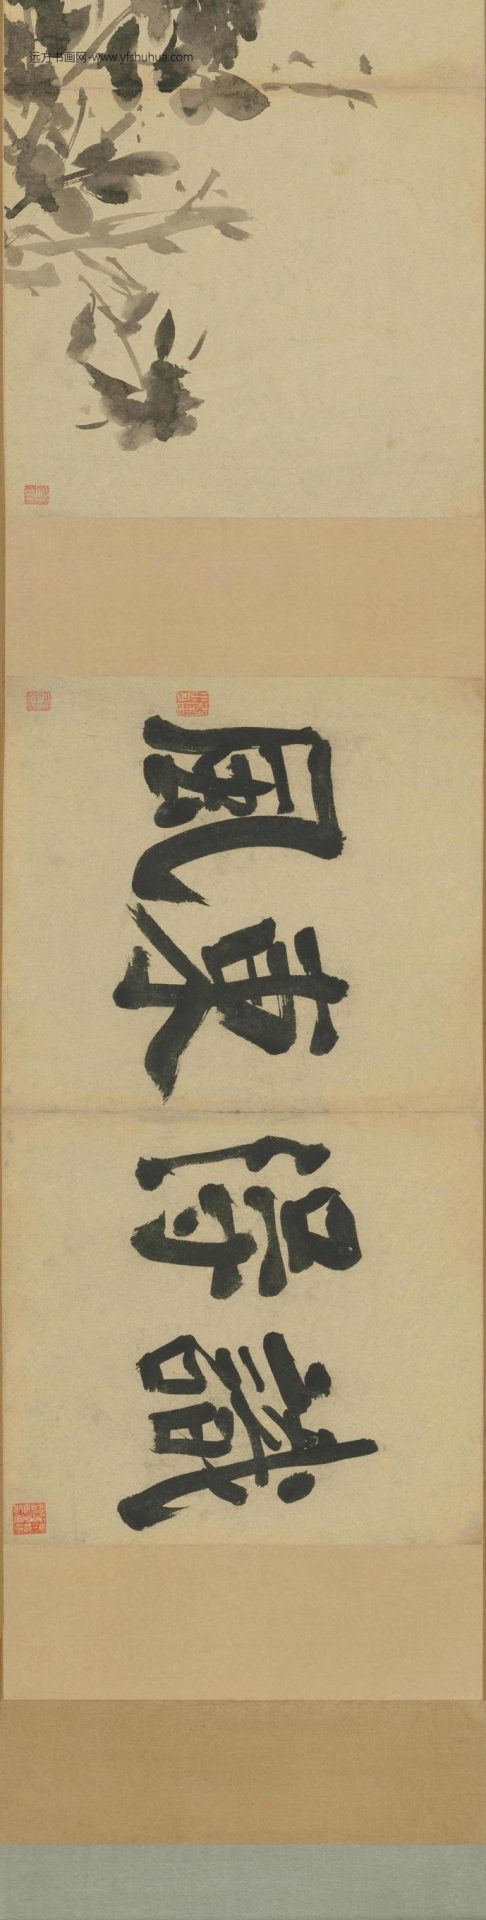 远方书画网-www.yfshuhua.com
識得東風